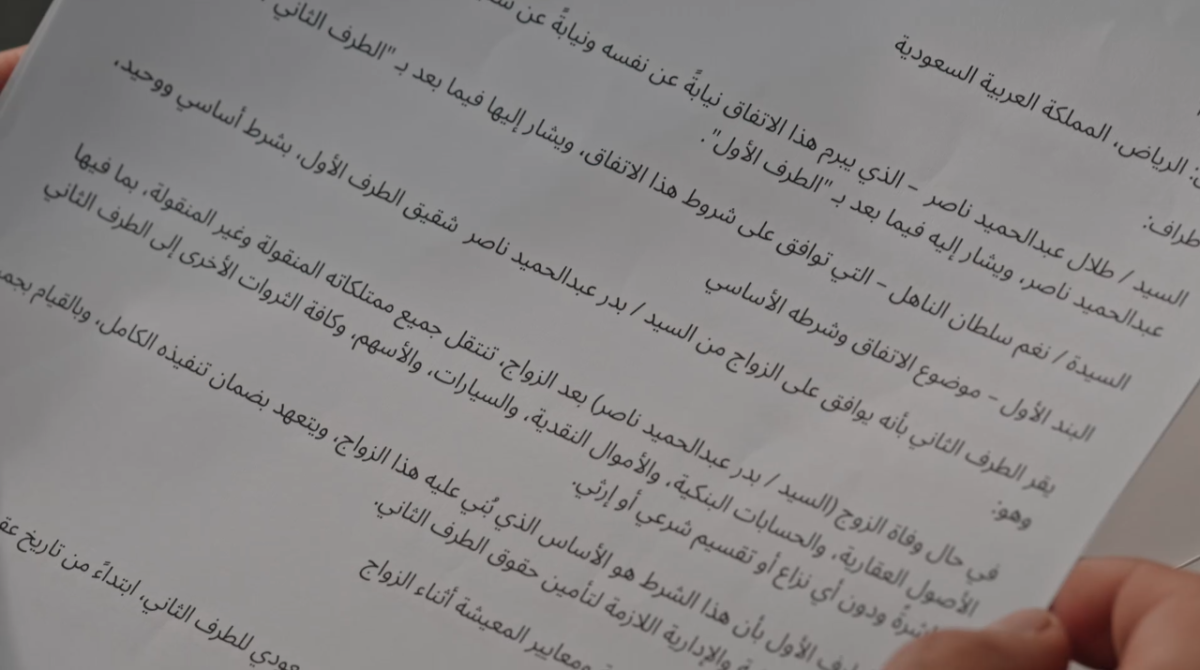 الرياض، المملكة العربية السعودية
السيد / طلال عبدالحميد ناصر - الذي يبرم هذا الاتفاق نيابةً عن نفسه ونيابةً عن
عبدالحميد ناصر، ويشار إليه فيما بعد بـ"الطرف الأول".
السيدة / نغم سلطان الناهل - التي توافق على شروط هذا الاتفاق، ويشار إليها فيما بعد بـ"الطرف الثاني
البند الأول - موضوع الاتفاق وشرطه الأساسي
يقر الطرف الثاني بأنه يوافق على الزواج من السيد / بدر عبدالحميد ناصر شقيق الطرف الأول، بشرط أساسي ووحيد،
وهو:
في حال وفاة الزوج (السيد / بدر عبدالحميد ناصر) بعد الزواج، تنتقل جميع ممتلكاته المنقولة وغير المنقولة، بما فيها
الأصول العقارية، والحسابات البنكية، والأموال النقدية، والسيارات، والأسهم، وكافة الثروات الأخرى إلى الطرف الثاني
ودون أي نزاع أو تقسيم شرعي أو إرثي.
الأول بأن هذا الشرط هو الأساس الذي بُني عليه هذا الزواج، ويتعهد بضمان تنفيذه الكامل، وبالقيام
والإدارية اللازمة لتأمين حقوق الطرف الثاني.
ومعايير المعيشة أثناء الزواج
للطرف الثاني، ابتداءً من تاريخ